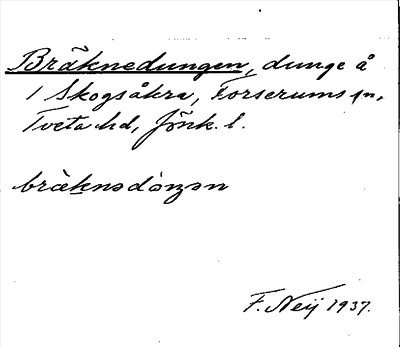 Bräknedungen, dunge å
1 Skogsåkra, Forserums sn,
Tveta hd, Jönk. l.
bräknədåŋən
F. Neij 1937.